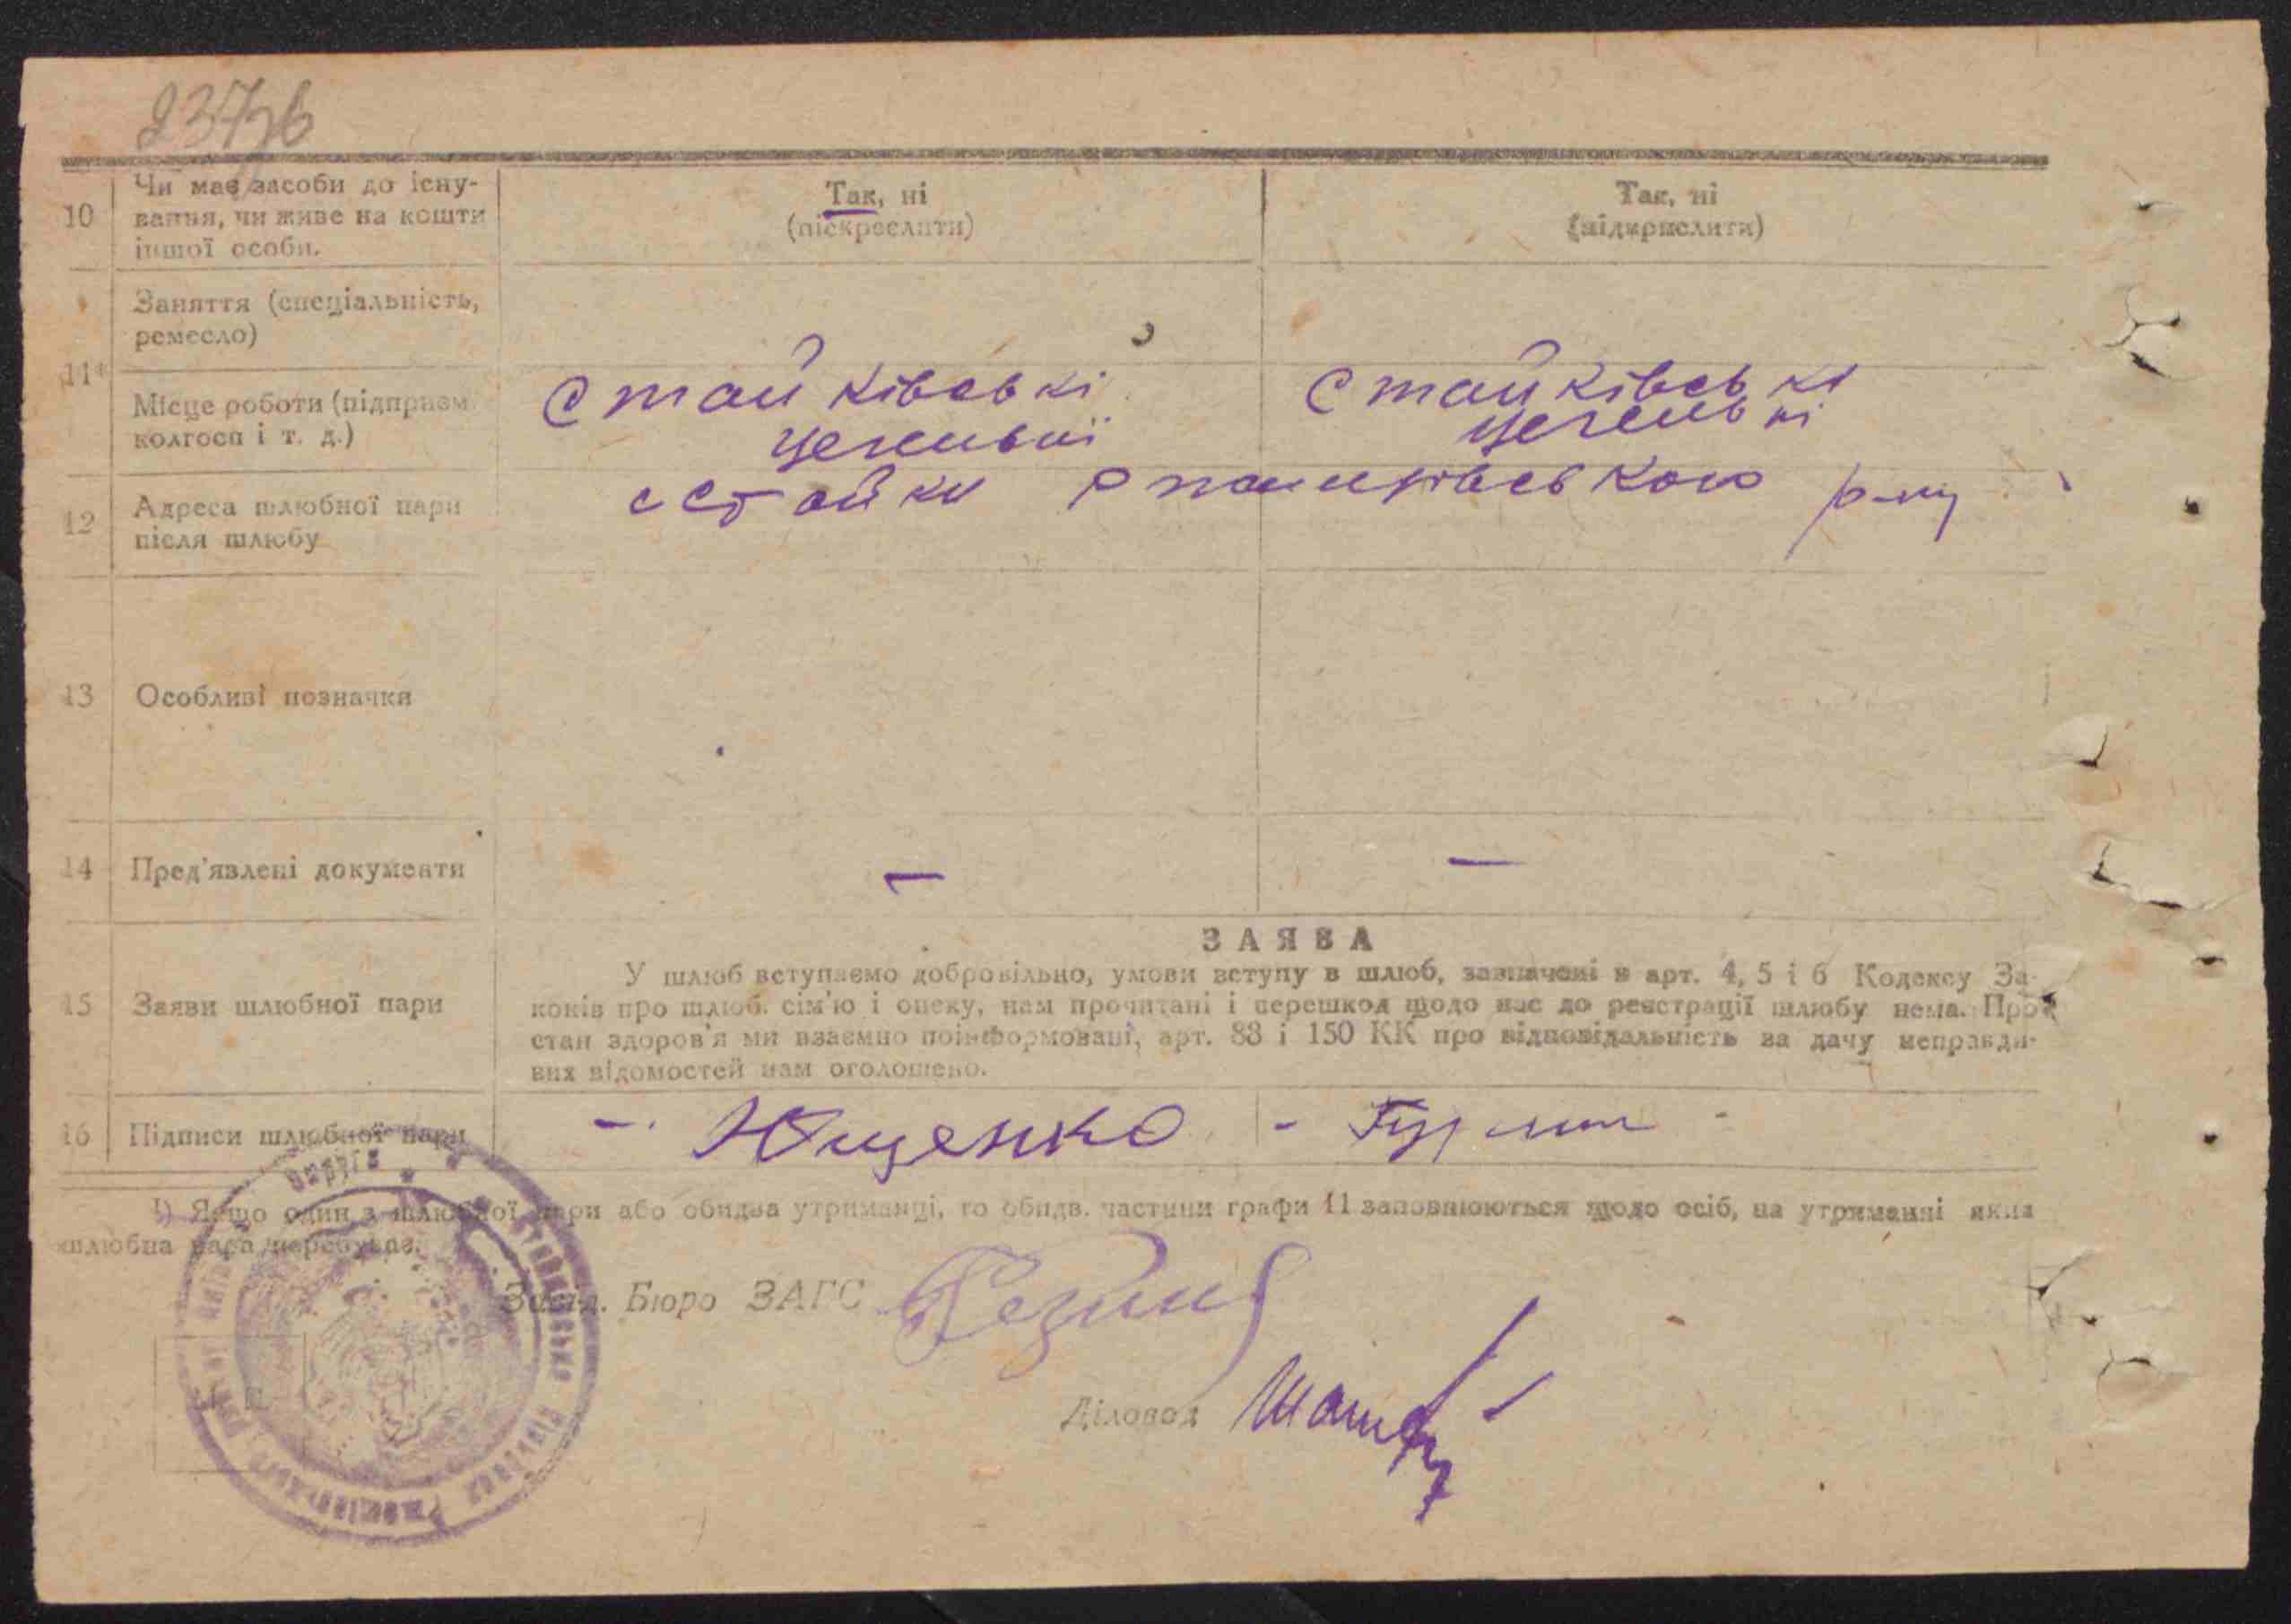 10
Чи має засоби до існу-
вання, чи живе на кошти
іншої особи.
Так, ні
(піскреслити)
Так, ні
(підкреслити)
Заняття (спеціальність,
ремесло)
11
Місце роботи (підприєм.
колгосп і т. д.)
Стайківські
цегельні
Стайківські
цегельні
12
Адреса шлюбної пари
після шлюбу
с Стайки р-ну
13
Особливі позначки
14
Пред'явлені документи
—
—
15
Заяви шлюбної пари
ЗАЯВА
У шлюб вступаємо добровільно, умови вступу в шлюб, зазначені в арт. 4, 5 і 6 Кодексу За-
конів про шлюб. сім'ю і опеку, нам прочитані і перешкод щодо нас до реєстрації шлюбу нема. Про
стан здоров'я ми взаємно поінформовані, арт. 83 і 150 КК про відповідальність за дачу неправди-
вих відомостей нам оголошено.
16
Підписи шлюбної пари
Ющенко
1) Якщо один з шлюбної пари або обидва утриманці, то обидв. частини графи 11 заповнюються щодо осіб, на утриманні яких
шлюбна пара перебуває.
Завід. Бюро ЗАГС
Діловод